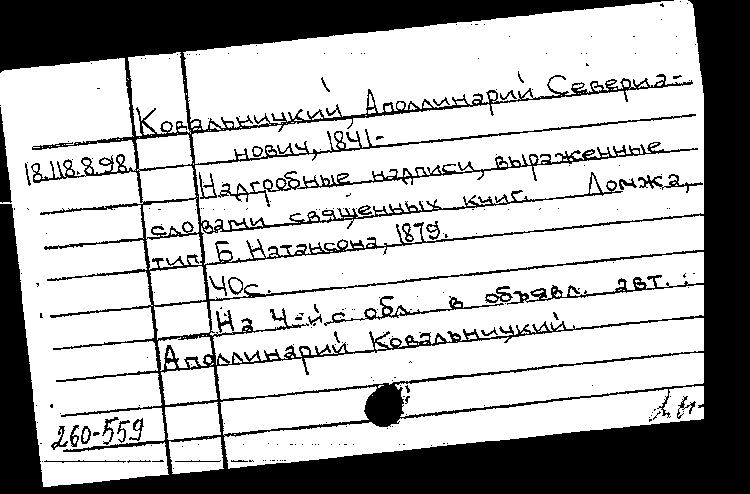 Ковальницкий, Аполлинарий Севериа-
нович, 1841-
18.118.8.98.
Надгробные надписи, выраженные
словами священных книг. Ломжа,
тип. Б. Натансона, 1879.
40с.
На 4-й с. обл. в объявл. авт.:
Аполлинарий Ковальницкий.
260-559